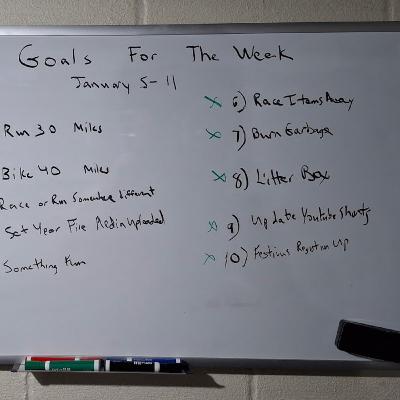 Goals For The Week
January 5-11
Run 30 Miles
Bike 40 Miles
Race or Run Somewhere Different
Set Year Fire Media Uploaded
Something Fun
x 6) Race Items Away
x 7) Burn Garbage
x 8) Litter Box
x 9) Update Youtube Shorts
x 10) Festivus Up